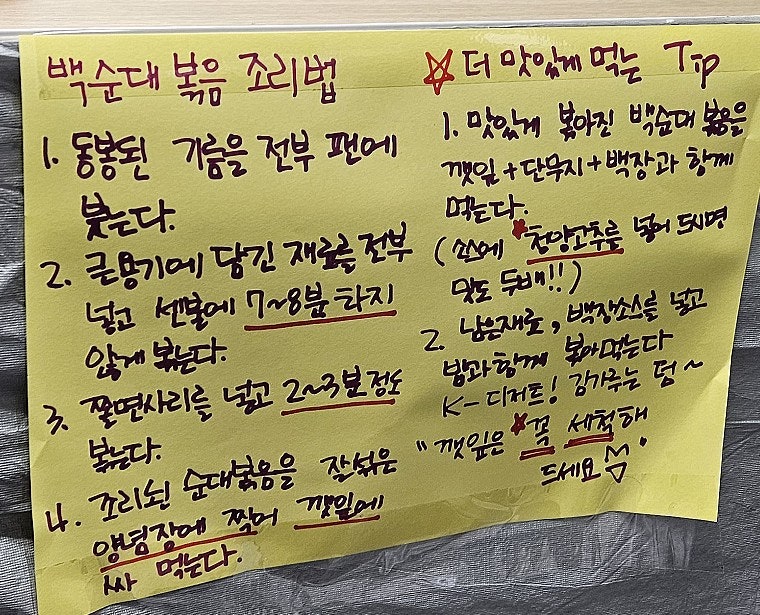 백순대 볶음 조리법
1. 동봉된 기름을 전부 팬에
붓는다.
2. 큰용기에 담긴 재료를 전부
넣고 센불에 7~8분 타지
않게 볶는다.
3. 쫄면사리를 넣고 2~3분정도
볶는다.
4. 조리된 순대볶음을 잘섞은
양념장에 찍어 깻잎에
싸 먹는다.
☆ 더 맛있게 먹는 Tip
1. 맛있게 볶아진 백순대 볶음을
깻잎+단무지+백장과 함께
먹는다.
(소스에 *청양고추를 넣어 드시면
맛도 두배!!)
2. 남은재료, 백장소스를 넣고
밥과함께 볶아먹는다
K-디저트! 감가루는 덤~
"깻잎은 *꼭 세척해
드세요"